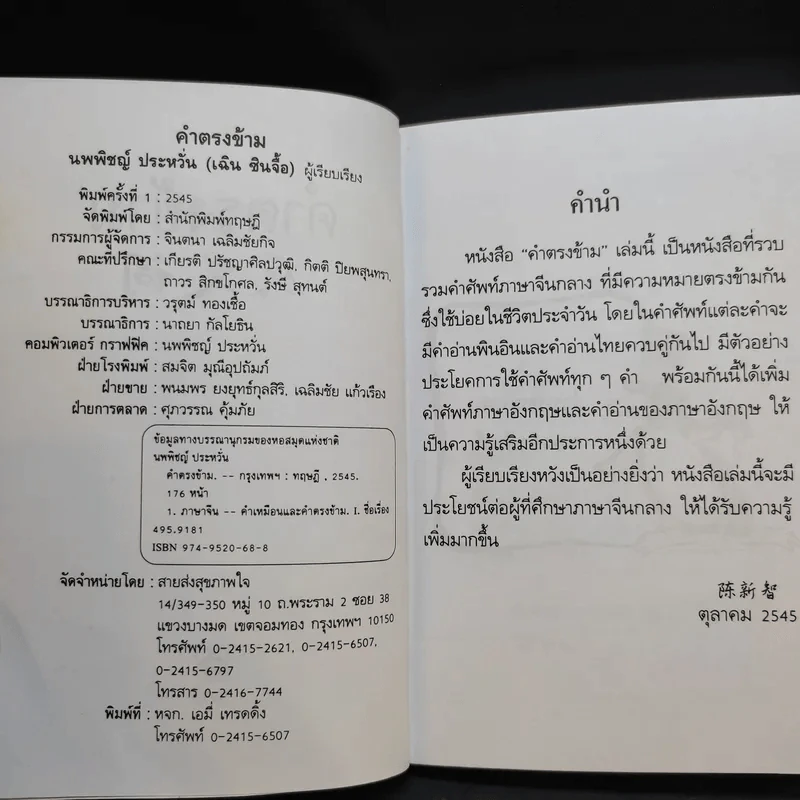 คำตรงข้าม
นพพิชญ์ ประหวั่น (เฉิน ซินจื้อ) ผู้เรียบเรียง
พิมพ์ครั้งที่ 1 : 2545
จัดพิมพ์โดย : สำนักพิมพ์ทฤษฎี
กรรมการผู้จัดการ : จินตนา เฉลิมชัยกิจ
คณะที่ปรึกษา : เกียรติ ปรัชญาศิลปวุฒิ, กิตติ ปิยพสุนทรา,
ถาวร สิกขโกศล, รังษี สุทนต์
บรรณาธิการบริหาร : วรุตม์ ทองเชื้อ
บรรณาธิการ : นาถยา กัลโยธิน
คอมพิวเตอร์ กราฟฟิค : นพพิชญ์ ประหวั่น
ฝ่ายโรงพิมพ์ : สมจิต มุณีอุปถัมภ์
ฝ่ายขาย : พนมพร ยงยุทธ์กุลสิริ, เฉลิมชัย แก้วเรือง
ฝ่ายการตลาด : ศุภวรรณ คุ้มภัย
ข้อมูลทางบรรณานุกรมของหอสมุดแห่งชาติ
นพพิชญ์ ประหวั่น
คำตรงข้าม. -- กรุงเทพฯ : ทฤษฎี , 2545.
176 หน้า
1. ภาษาจีน -- คำเหมือนและคำตรงข้าม. I. ชื่อเรื่อง
495.9181
ISBN 974-9520-68-8
จัดจำหน่ายโดย : สายส่งสุขภาพใจ
14/349-350 หมู่ 10 ถ.พระราม 2 ซอย 38
แขวงบางมด เขตจอมทอง กรุงเทพฯ 10150
โทรศัพท์ 0-2415-2621, 0-2415-6507,
0-2415-6797
โทรสาร 0-2416-7744
พิมพ์ที่ : หจก. เอมี่ เทรดดิ้ง
โทรศัพท์ 0-2415-6507
คำนำ
หนังสือ “คำตรงข้าม” เล่มนี้ เป็นหนังสือที่รวบ
รวมคำศัพท์ภาษาจีนกลาง ที่มีความหมายตรงข้ามกัน
ซึ่งใช้บ่อยในชีวิตประจำวัน โดยในคำศัพท์แต่ละคำจะ
มีคำอ่านพินอินและคำอ่านไทยควบคู่กันไป มีตัวอย่าง
ประโยคการใช้คำศัพท์ทุก ๆ คำ พร้อมกันนี้ได้เพิ่ม
คำศัพท์ภาษาอังกฤษและคำอ่านของภาษาอังกฤษ ให้
เป็นความรู้เสริมอีกประการหนึ่งด้วย
ผู้เรียบเรียงหวังเป็นอย่างยิ่งว่า หนังสือเล่มนี้จะมี
ประโยชน์ต่อผู้ที่ศึกษาภาษาจีนกลาง ให้ได้รับความรู้
เพิ่มมากขึ้น
陈新智
ตุลาคม 2545